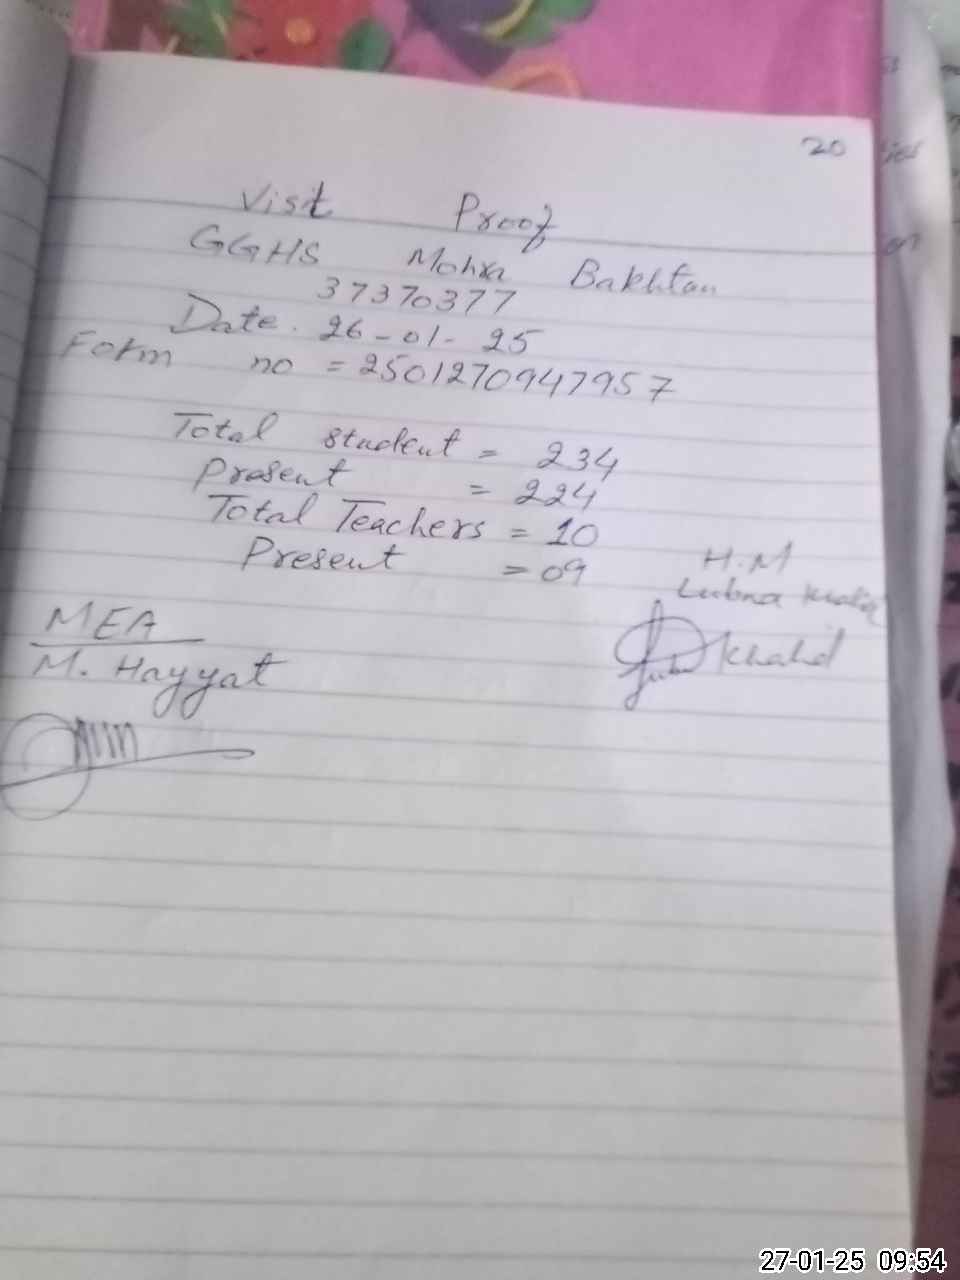 20
Visit Proof
GGHS Mohra Bakhtan
37370377
Date. 26-01-25
Form no = 2501270947957
Total student = 234
Present = 224
Total Teachers = 10
Present = 09
H.M
Lubna
Khalid
MEA
M. Hayyat
27-01-25 09:54